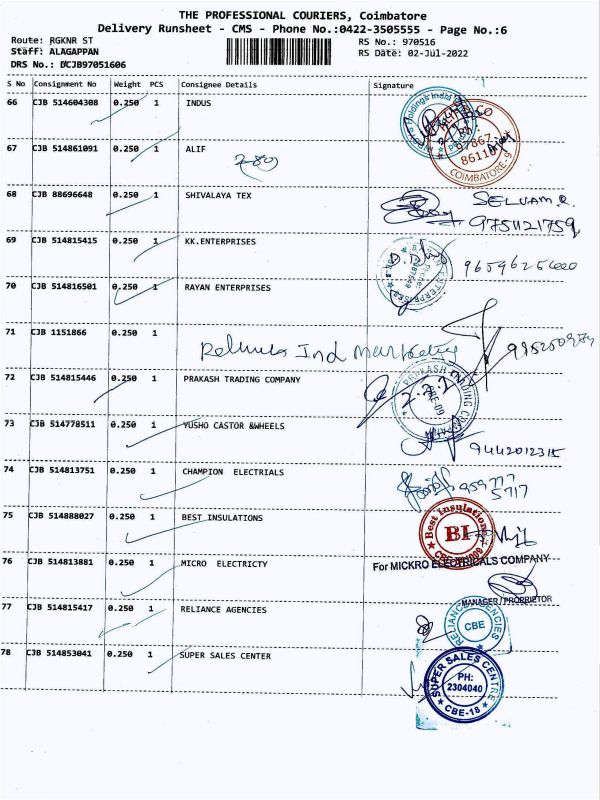 THE PROFESSIONAL COURIERS, Coimbatore
Delivery Runsheet - CMS - Phone No.:0422-3505555 - Page No.:6
Route: RGKNR ST
RS No.: 970516
Staff: ALAGAPPAN
RS Date: 02-Jul-2022
DRS No.: DCJB97051606
S No Consignment No Weight PCS Consignee Details Signature
66 CJB 514604308 0.250 1 INDUS
67 CJB 514861091 0.250 1 ALIF
COIMBATORE-9
68 CJB 88696648 0.250 1 SHIVALAYA TEX
SELVAM.R.
9751121759
69 CJB 514815415 0.250 1 KK.ENTERPRISES
70 CJB 514816501 0.250 1 RAYAN ENTERPRISES
71 CJB 1151866 0.250 1
Ind Marketing
72 CJB 514815446 0.250 1 PRAKASH TRADING COMPANY
PRAKASH TRADING COMPANY
73 CJB 514778511 0.250 1 YUSHO CASTOR &WHEELS
9442012315
74 CJB 514813751 0.250 1 CHAMPION ELECTRIALS
959777
5717
75 CJB 514888027 0.250 1 BEST INSULATIONS
Best Insulation
BI
76 CJB 514813881 0.250 1 MICRO ELECTRICTY
For MICKRO ELECTRICALS COMPANY
MANAGER / PROPRIETOR
77 CJB 514815417 0.250 1 RELIANCE AGENCIES
RELIANCE AGENCIES
CBE
78 CJB 514853041 0.250 1 SUPER SALES CENTER
SUPER SALES CENTRE
PH:
2304040
CBE-18